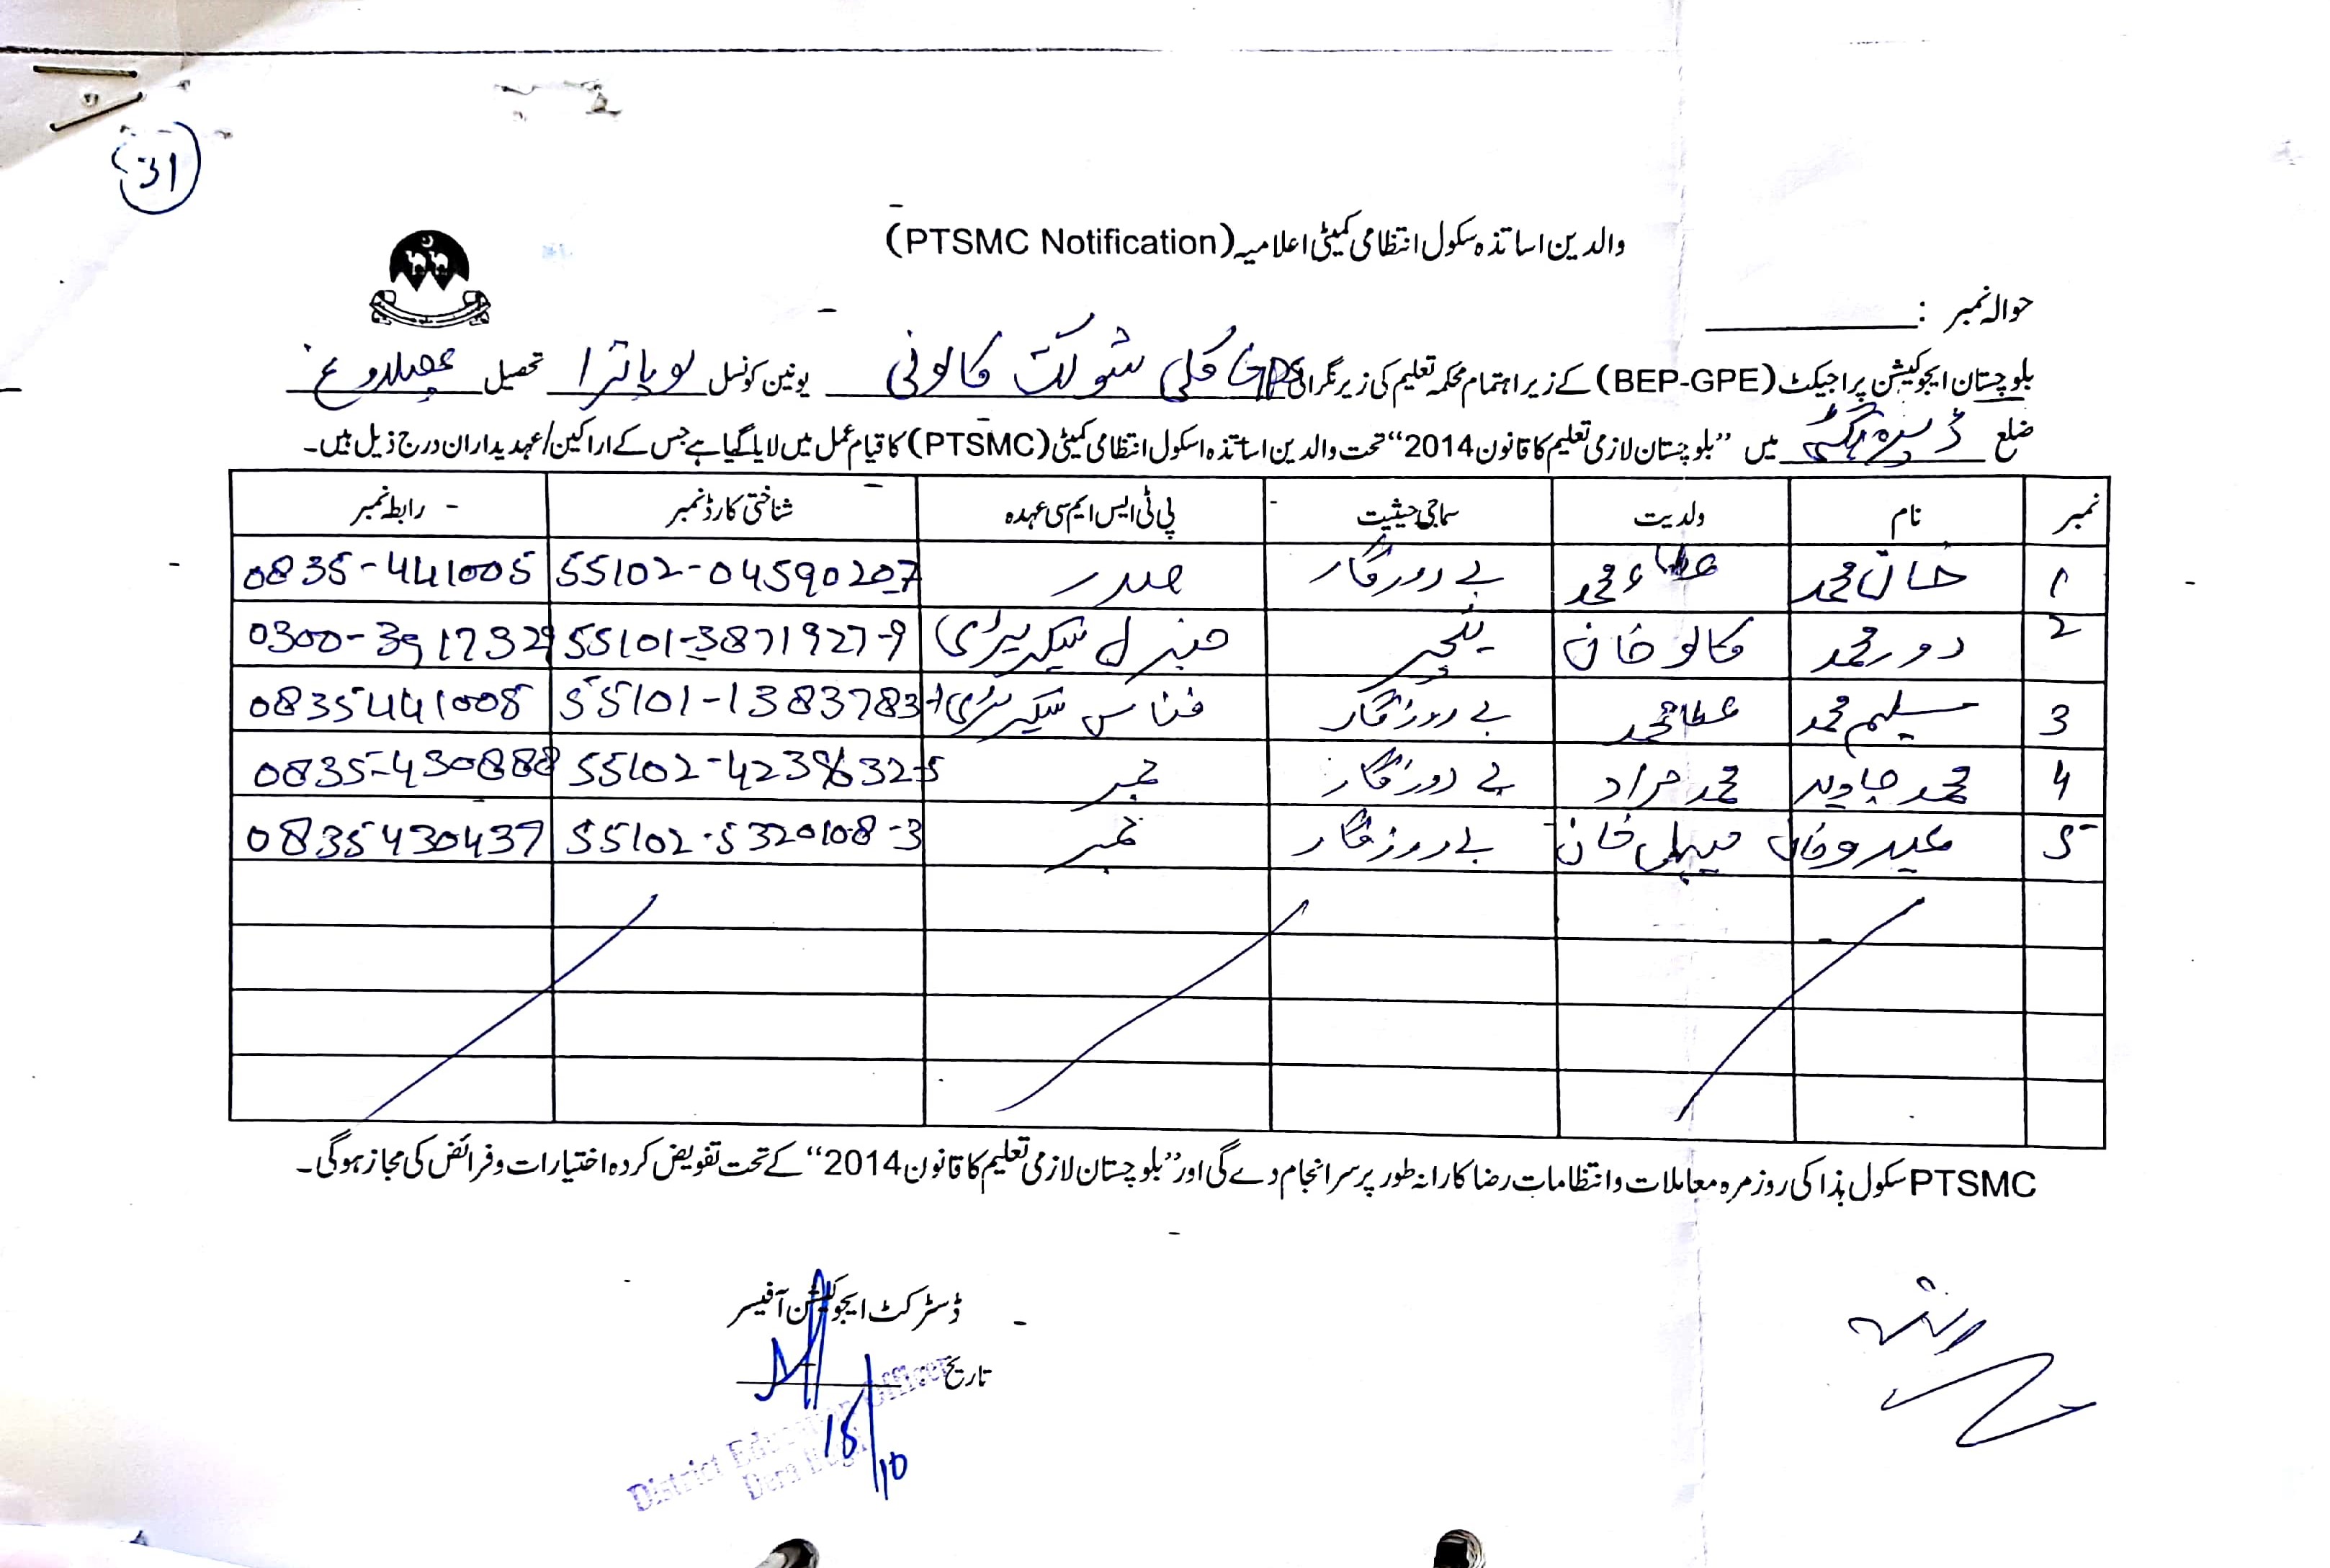 31
والدین اساتذہ سکول انتظامی کمیٹی اعلامیہ (PTSMC Notification)
حوالہ نمبر :
بلوچستان ایجوکیشن پراجیکٹ (BEP-GPE) کے زیر اہتمام محکمہ تعلیم کی زیر نگرانی GPS کلی شوکت کالونی یونین کونسل لوپاترا تحصیل
ضلع ڈیرہ بگٹی میں ”بلوچستان لازمی تعلیم کا قانون 2014“ تحت والدین اساتذہ اسکول انتظامی کمیٹی (PTSMC) کا قیام عمل میں لایا گیا ہے جس کے اراکین/عہدیداران درج ذیل ہیں۔
نمبر نام ولدیت سماجی حیثیت پی ٹی ایس ایم سی عہدہ شناختی کارڈ نمبر رابطہ نمبر
1 خان محمد عطاء محمد بے روزگار صدر 55102-0459020-7 0835-441005
2 دور محمد کالو خان ٹیچر جنرل سیکریٹری 55101-3871927-9 0300-3917329
3 سلیم محمد عطا محمد بے روزگار فنانس سیکریٹری 55101-1383783 0835441005
4 محمد جاوید محمد مراد بے روزگار ممبر 0835-430888
5 عیدو خان میہل خان بے روزگار ممبر 55102-5320108-3 0835430437
PTSMC سکول ہذا کی روزمرہ معاملات و انتظامات رضا کارانہ طور پر سرانجام دے گی اور ”بلوچستان لازمی تعلیم کا قانون 2014“ کے تحت تفویض کردہ اختیارات و فرائض کی مجاز ہوگی۔
ڈسٹرکٹ ایجوکیشن آفیسر
تاریخ
18/10
District Education Officer
Dera Bugti